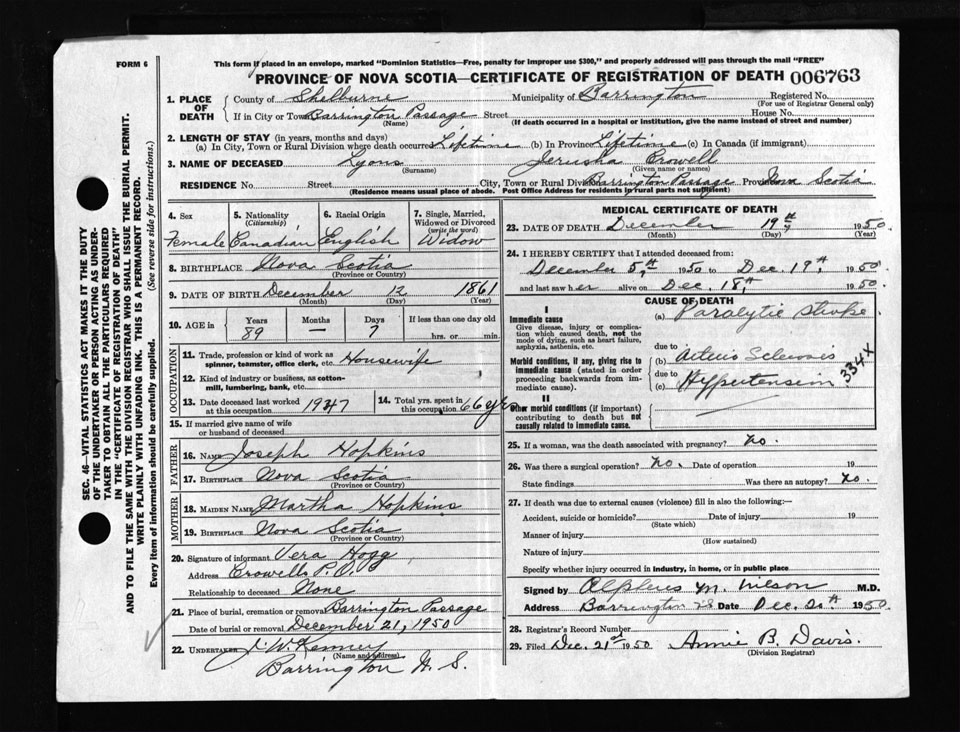 FORM 6
This form if placed in an envelope, marked "Dominion Statistics—Free, penalty for improper use $300," and properly addressed will pass through the mail "FREE"
PROVINCE OF NOVA SCOTIA—CERTIFICATE OF REGISTRATION OF DEATH 006763
1. PLACE OF DEATH
County of Shelburne Municipality of Barrington Registered No.
(For use of Registrar General only)
If in City or Town Barrington Passage Street House No.
(Name) (If death occurred in a hospital or institution, give the name instead of street and number)
2. LENGTH OF STAY (in years, months and days)
(a) In City, Town or Rural Division where death occurred Lifetime (b) In Province Lifetime (c) In Canada (if immigrant)
3. NAME OF DECEASED Lyons Jerusha Crowell
(Surname) (Given name or names)
RESIDENCE No. Street City, Town or Rural Division Barrington Passage Province Nova Scotia
(Residence means usual place of abode. Post Office Address for residents in rural parts not sufficient)
4. Sex Female
5. Nationality (Citizenship) Canadian
6. Racial Origin English
7. Single, Married, Widowed or Divorced (write the word) Widow
8. BIRTHPLACE Nova Scotia
(Province or Country)
9. DATE OF BIRTH December 12 1861
(Month) (Day) (Year)
10. AGE in Years 89 Months — Days 7 If less than one day old
hrs. or min.
OCCUPATION
11. Trade, profession or kind of work as spinner, teamster, office clerk, etc. Housewife
12. Kind of industry or business, as cotton-mill, lumbering, bank, etc.
13. Date deceased last worked at this occupation 1947
14. Total yrs. spent in this occupation 66 yrs
15. If married give name of wife or husband of deceased
FATHER
16. NAME Joseph Hopkins
17. BIRTHPLACE Nova Scotia
(Province or Country)
MOTHER
18. MAIDEN NAME Martha Hopkins
19. BIRTHPLACE Nova Scotia
(Province or Country)
20. Signature of informant Vera Hogg
Address Crowells P.O.
Relationship to deceased None
21. Place of burial, cremation or removal Barrington Passage
Date of burial or removal December 21, 1950
22. UNDERTAKER J. W. Kenney
(Name and address)
Barrington N. S.
MEDICAL CERTIFICATE OF DEATH
23. DATE OF DEATH December 19th 1950
(Month) (Day) (Year)
24. I HEREBY CERTIFY that I attended deceased from:
December 5th 1950 to Dec. 19th 1950
and last saw her alive on Dec. 18th 1950
CAUSE OF DEATH
I
Immediate cause
Give disease, injury or complication which caused death, not the mode of dying, such as heart failure, asphyxia, asthenia, etc.
(a) Paralytic Stroke
due to
Morbid conditions, if any, giving rise to immediate cause (stated in order proceeding backwards from immediate cause).
(b) Arterio Sclerosis
due to
(c) Hypertension
334X
II
Other morbid conditions (if important) contributing to death but not causally related to immediate cause.
25. If a woman, was the death associated with pregnancy? No.
26. Was there a surgical operation? No. Date of operation 19
State findings Was there an autopsy? No.
27. If death was due to external causes (violence) fill in also the following:—
Accident, suicide or homicide? Date of injury 19
(State which)
Manner of injury
(How sustained)
Nature of injury
Specify whether injury occurred in industry, in home, or in public place
Signed by Alpheus M. Wilson M.D.
Address Barrington NS Date Dec. 20th 1950
28. Registrar's Record Number
29. Filed Dec. 21st 1950 Annie B. Davis.
(Division Registrar)
SEC. 46—VITAL STATISTICS ACT MAKES IT THE DUTY
OF THE UNDERTAKER OR PERSON ACTING AS UNDER-
TAKER TO OBTAIN ALL THE PARTICULARS REQUIRED
IN THE "CERTIFICATE OF REGISTRATION OF DEATH"
AND TO FILE THE SAME WITH THE DIVISION REGISTRAR WHO SHALL ISSUE THE BURIAL PERMIT.
WRITE PLAINLY WITH UNFADING INK. THIS IS A PERMANENT RECORD.
Every item of information should be carefully supplied. (See reverse side for instructions.)